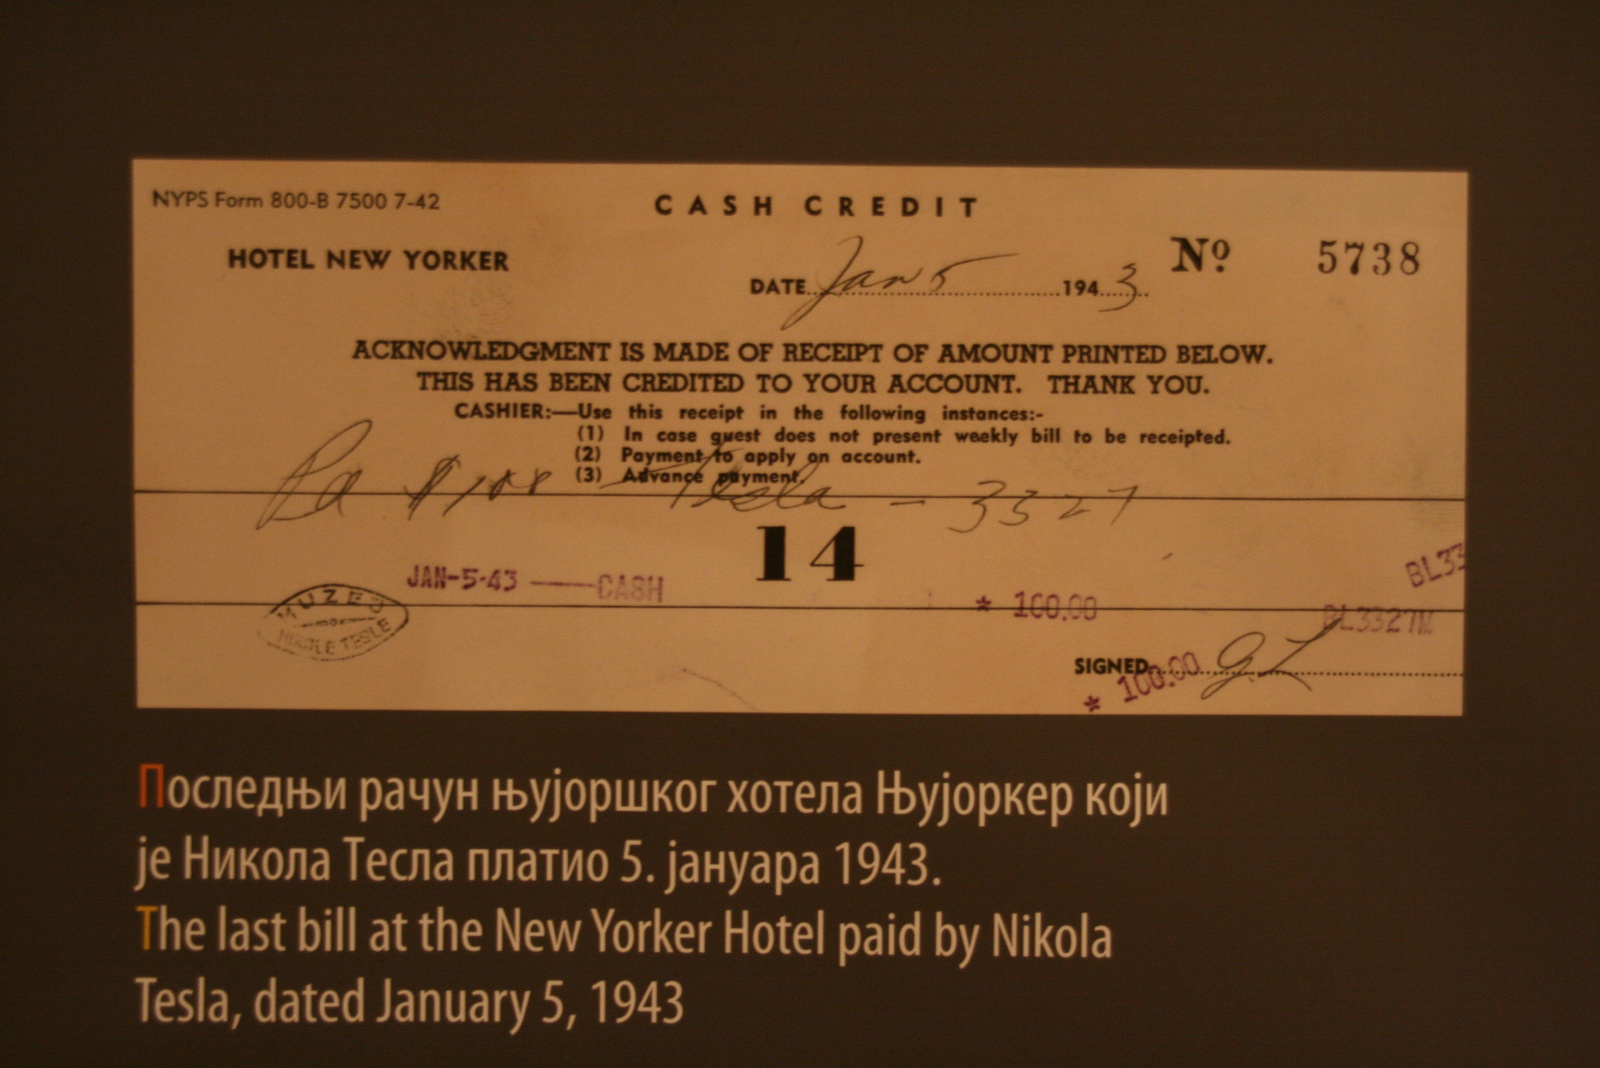 NYPS Form 800-B 7500 7-42
CASH CREDIT
HOTEL NEW YORKER
Nº 5738
DATE Jan 5 1943
ACKNOWLEDGMENT IS MADE OF RECEIPT OF AMOUNT PRINTED BELOW.
THIS HAS BEEN CREDITED TO YOUR ACCOUNT. THANK YOU.
CASHIER:—Use this receipt in the following instances:-
(1) In case guest does not present weekly bill to be receipted.
(2) Payment to apply on account.
(3) Advance payment.
Pd $100 — Tesla — 3327
14
JAN-5-43 —— CASH
* 100.00
BL33
BL3327M
MUZEJ
NIKOLE TESLE
SIGNED G.L
* 100.00
Последњи рачун њујоршког хотела Њујоркер који
је Никола Тесла платио 5. јануара 1943.
The last bill at the New Yorker Hotel paid by Nikola
Tesla, dated January 5, 1943